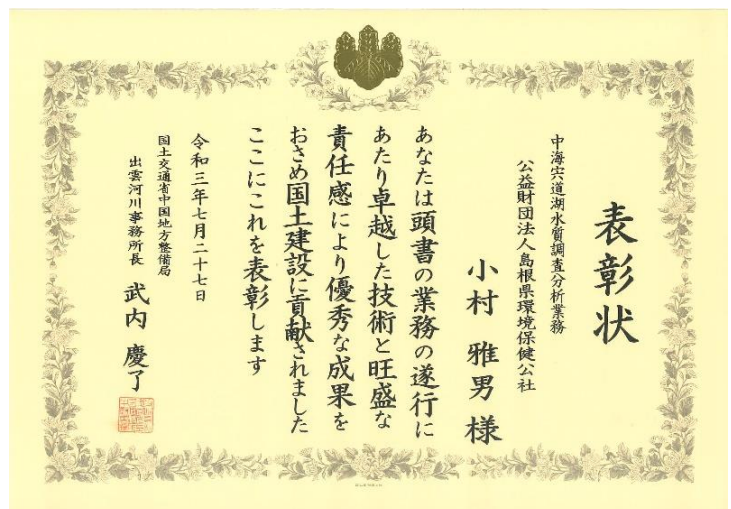 表彰状
中海宍道湖水質調査分析業務
公益財団法人島根県環境保健公社
小村 雅男 様
あなたは頭書の業務の遂行に
あたり卓越した技術と旺盛な
責任感により優秀な成果を
おさめ国土建設に貢献されました
ここにこれを表彰します
令和三年七月二十七日
国土交通省中国地方整備局
出雲河川事務所長 武内 慶了